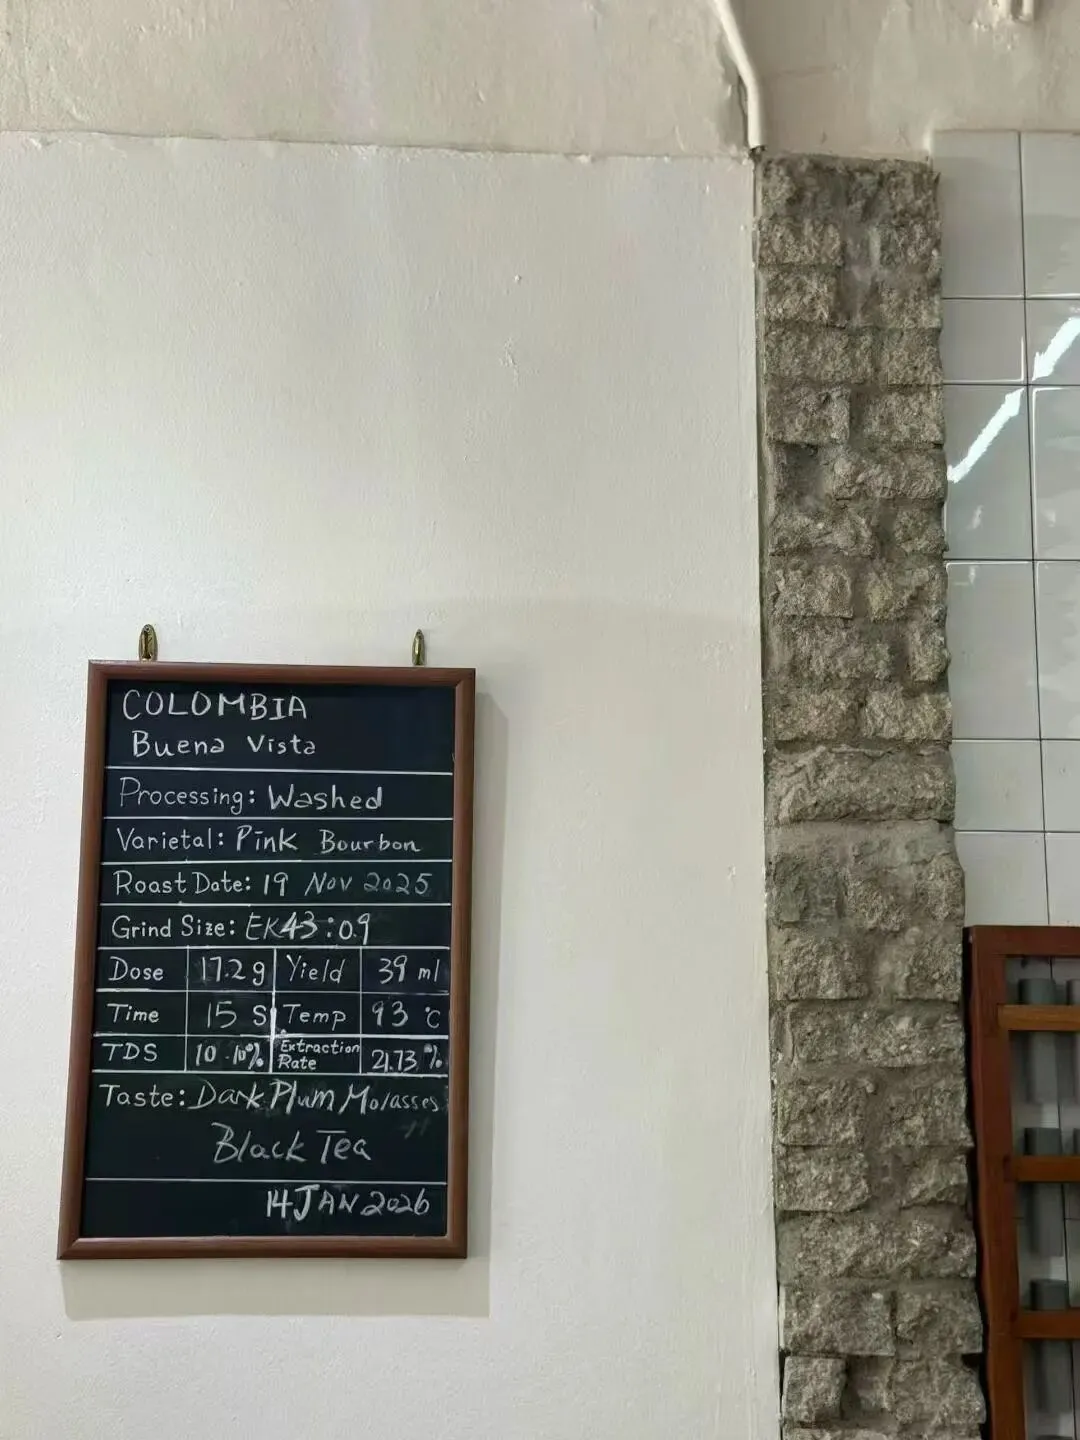 COLOMBIA
Buena Vista
Processing: Washed
Varietal: Pink Bourbon
Roast Date: 19 Nov 2025
Grind Size: EK43:0.9
Dose 17.2g Yield 39 ml
Time 15 S Temp 93 °C
TDS 10.10% Extraction Rate 21.73 %
Taste: Dark Plum Molasses
Black Tea
14 JAN 2026